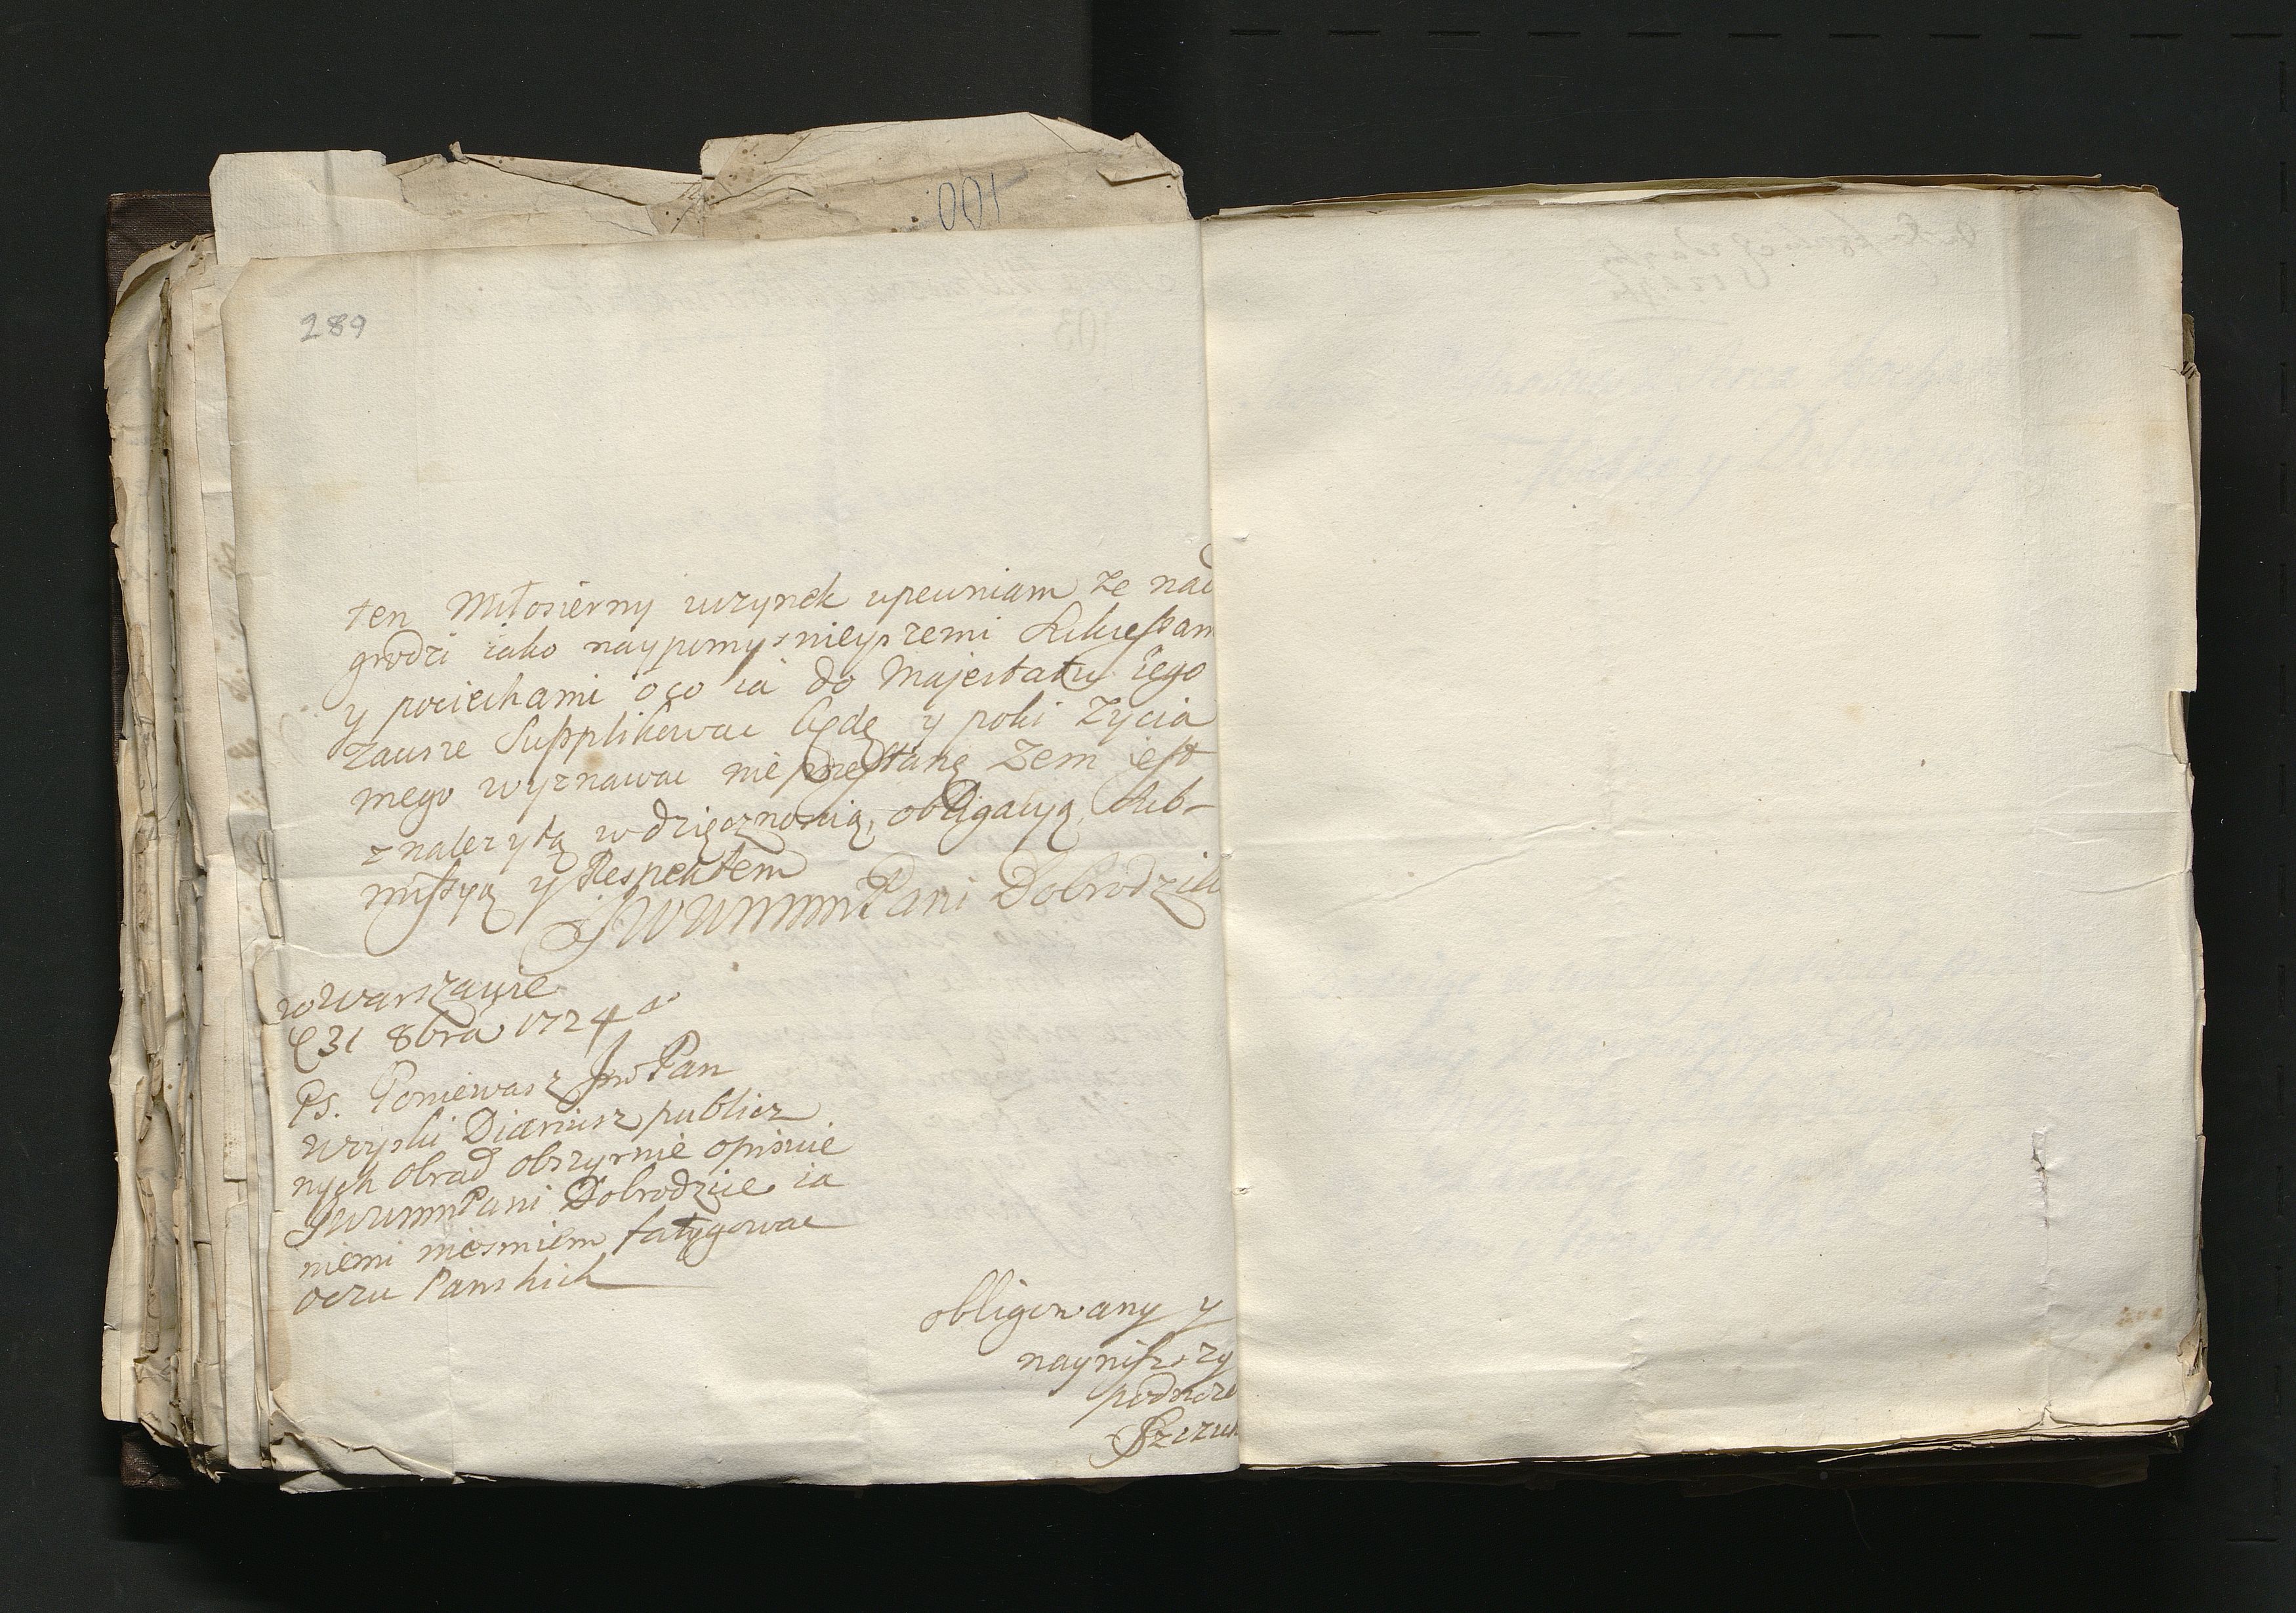 001
289
ten Miłosierny uczynek upewniam ze nad
grodzi iako naypomyslnieyszemi Sukcessam
y pociechami o co ia do Majestatu iego
zawsze Supplikowac będę y poki Zycia
mego wyznawac nie przestanę zem iest
z nalezytą wdzięcznoscią, obligacyą, Sub-
missyą y Respektem
JWWMMMPani Dobrodziki
w Warszawie
d 31 8bra 1724 a
Ps. Poniewasz Jmć Pan
Uzyski Diariusz publicz
nych Obrad obszyrnie opisuie
JWWMMPani Dobrodzice ia
niemi niesmiem fatygowac
oczu Panskich
obligowany y
nayniszszy
podnoze
Szczuk